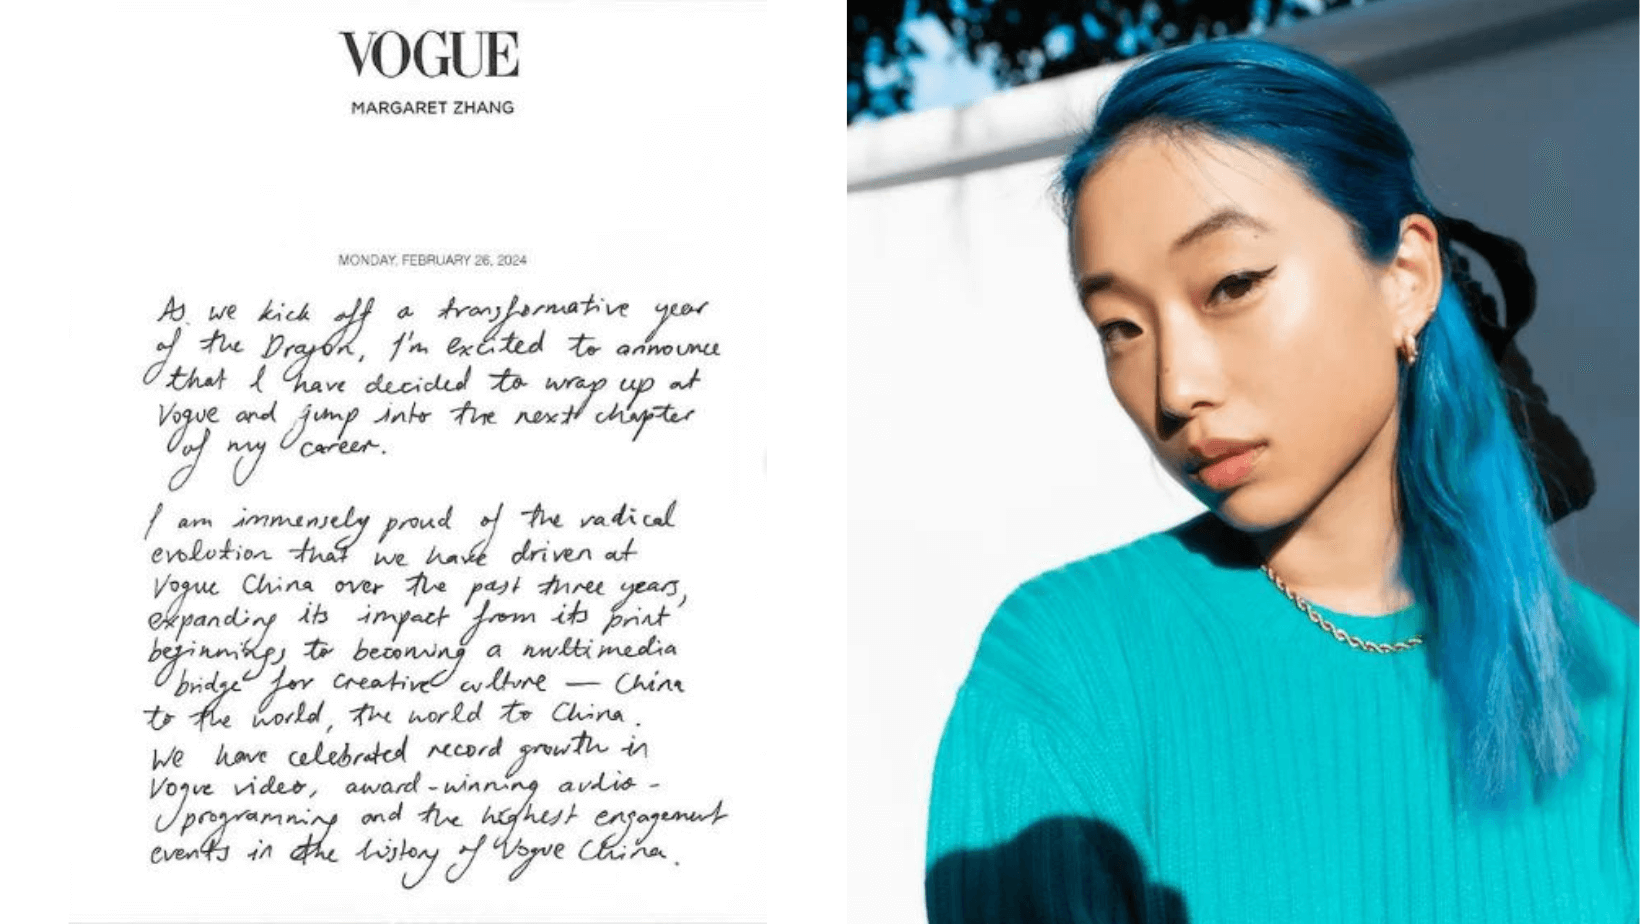 VOGUE
MARGARET ZHANG
MONDAY, FEBRUARY 26, 2024
As we kick off a transformative year
of the Dragon, I'm excited to announce
that I have decided to wrap up at
Vogue and jump into the next chapter
of my career.
I am immensely proud of the radical
evolution that we have driven at
Vogue China over the past three years,
expanding its impact from its print
beginnings to becoming a multimedia
bridge for creative culture — China
to the world, the world to China.
We have celebrated record growth in
Vogue video, award-winning audio-
programming and the highest engagement
events in the history of Vogue China.